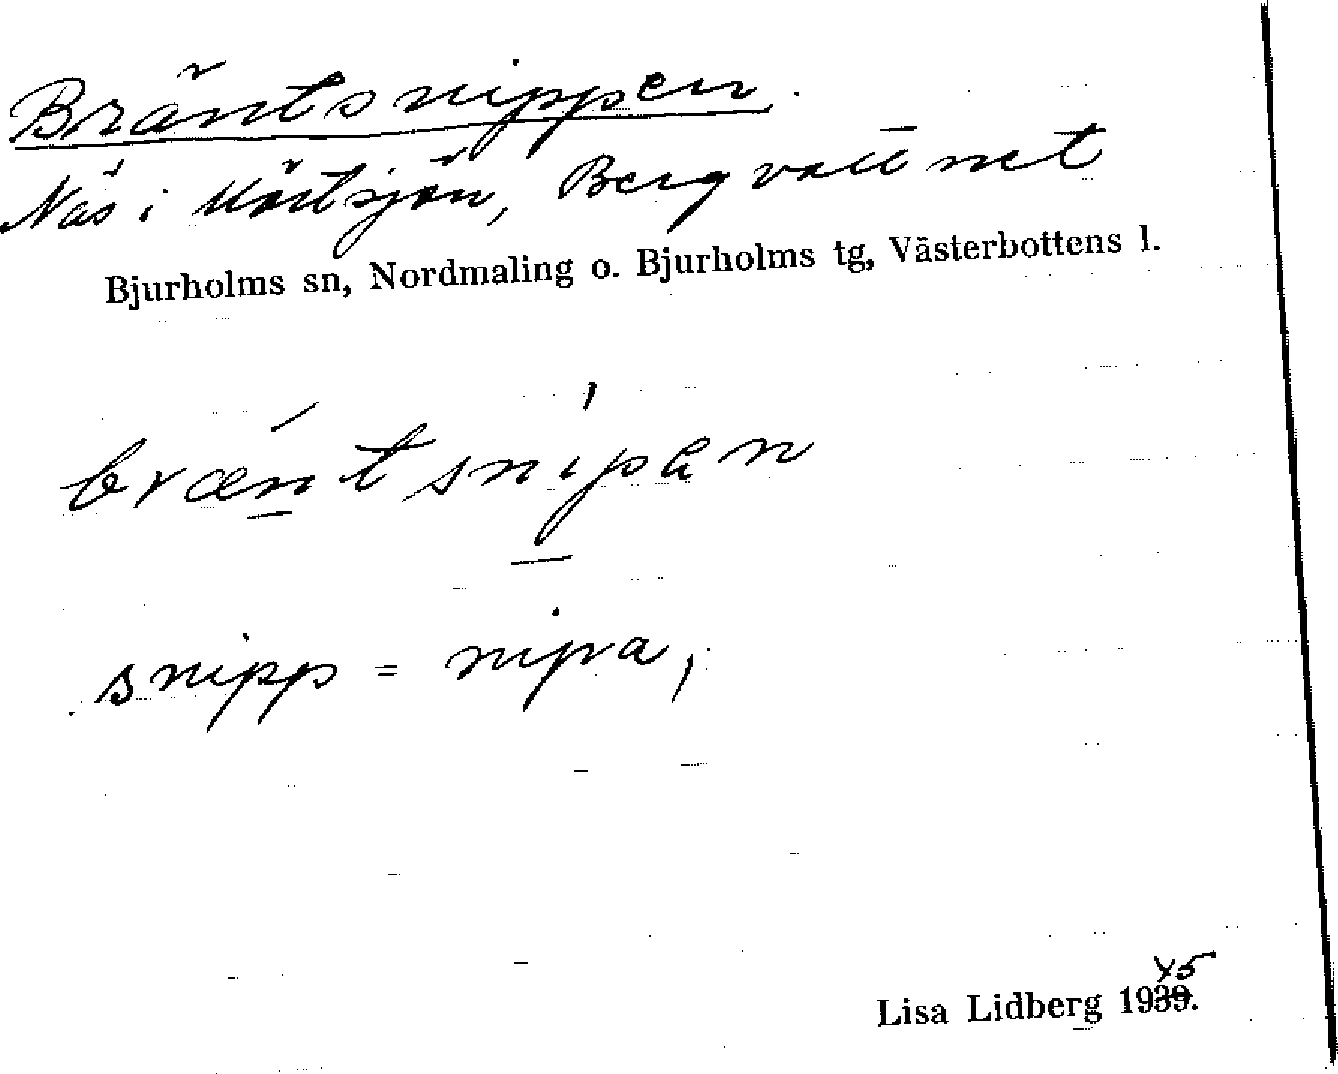 Bräntsnippen
Näs i Mörtsjön, Bergvattnet
Bjurholms sn, Nordmaling o. Bjurholms tg, Västerbottens l.
bræntsnipan
snipp = nipa,
45
Lisa Lidberg 1939.